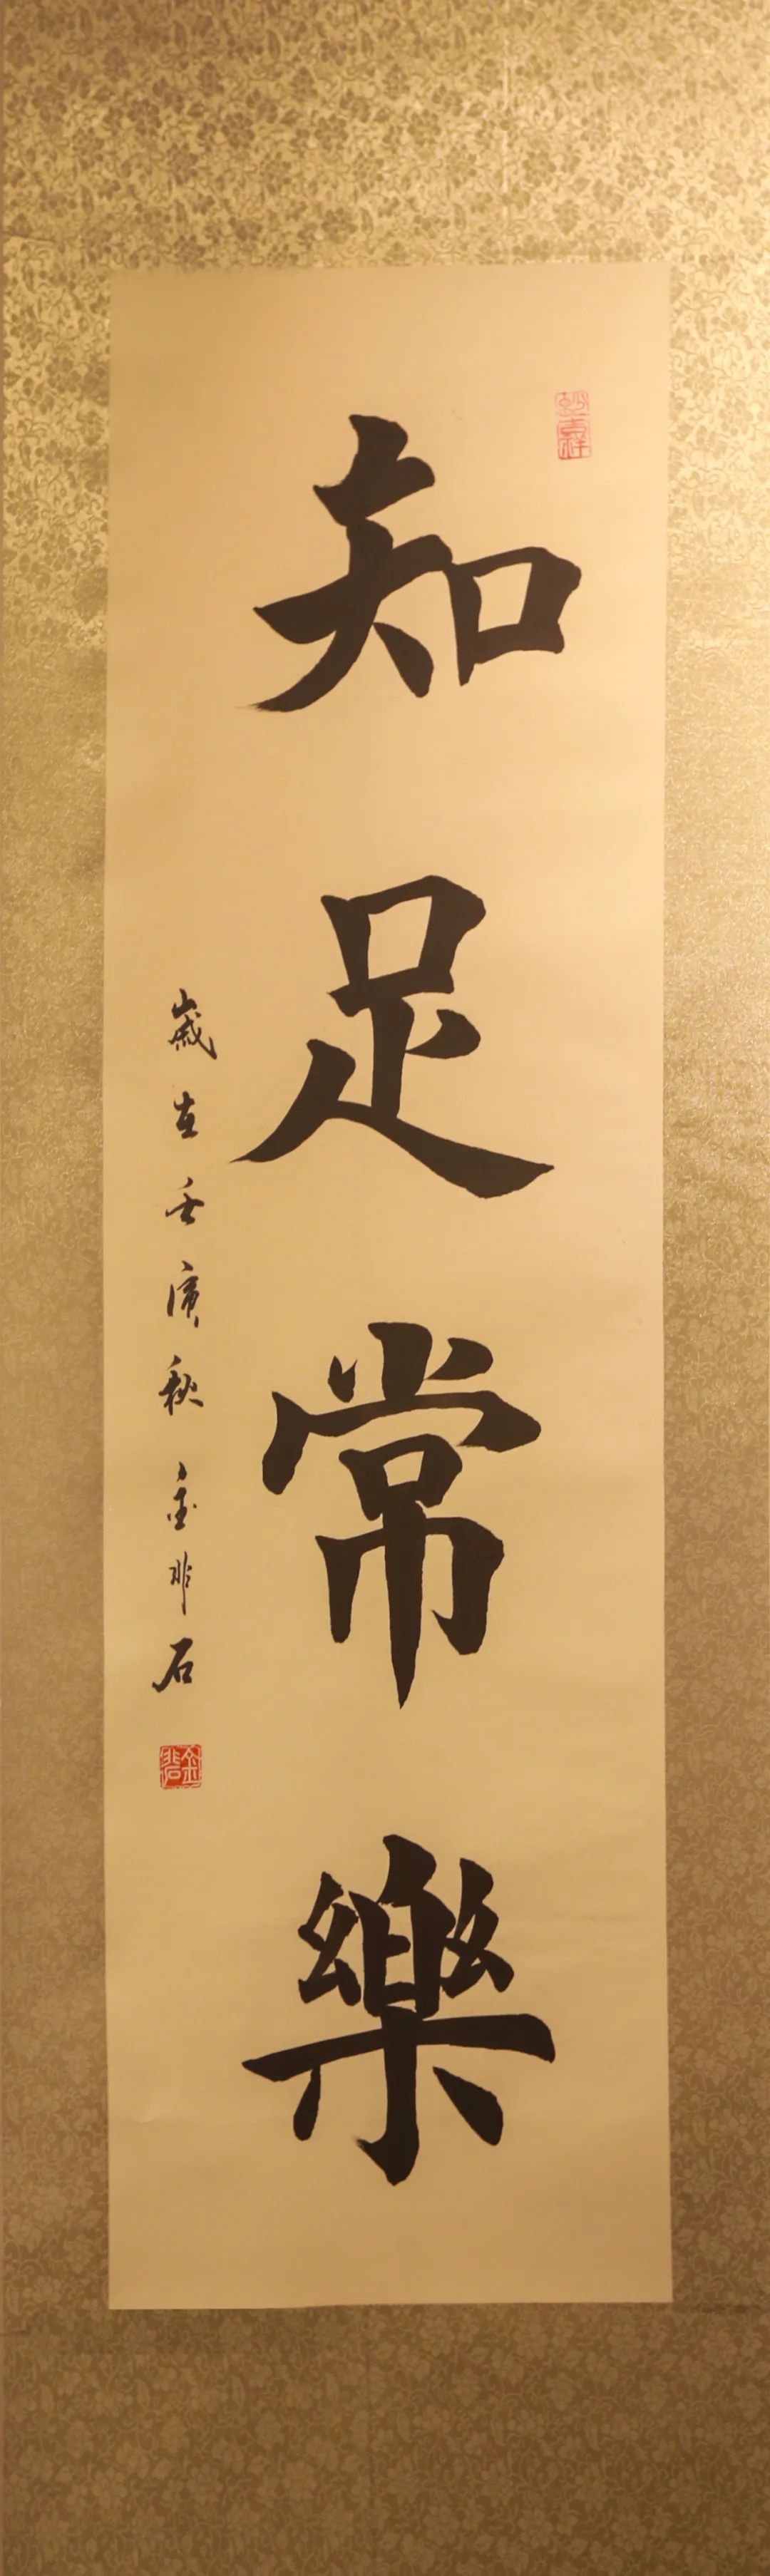 知足常樂
歲在壬寅秋 金非石